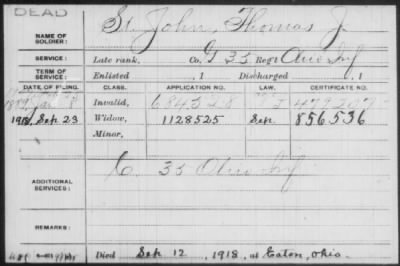 DEAD
NAME OF SOLDIER: St. John, Thomas J.
SERVICE: Late rank, Co. G 35 Reg't Ohio Inf
TERM OF SERVICE: Enlisted , 1 Discharged , 1
DATE OF FILING. CLASS. APPLICATION NO. LAW. CERTIFICATE NO.
Invalid, 684528
1918, Sep. 23 Widow, 1128525 Sep. 856536
Minor,
ADDITIONAL SERVICES: C. 35 Ohio Inf
REMARKS:
Died Sep 12, 1918, at Eaton, Ohio.